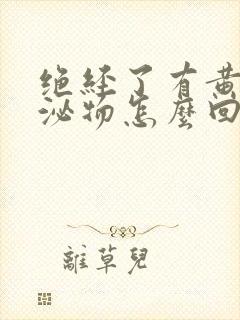 绝经了有黄
泌物怎麼回
離草兒